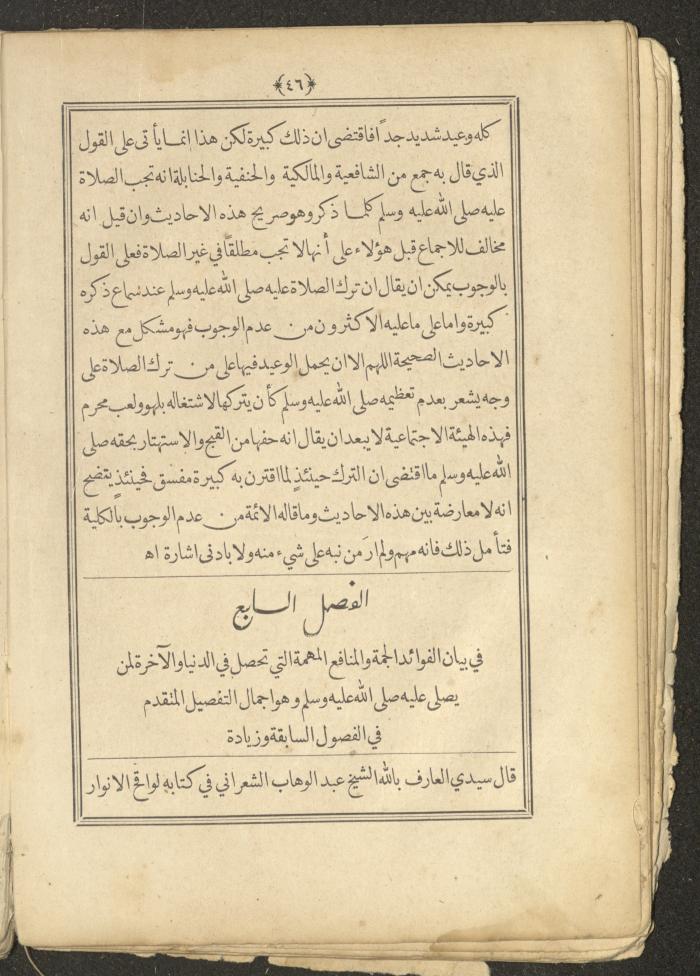 ﴿٤٦﴾
كله وعيد شديد جداً فاقتضى ان ذلك كبيرة لكن هذا انما يأتي على القول
الذي قال به جمع من الشافعية والمالكية والحنفية والحنابلة انه تجب الصلاة
عليه صلى الله عليه وسلم كلما ذكر وهو صريح هذه الاحاديث وان قيل انه
مخالف للاجماع قبل هؤلاء على أنها لا تجب مطلقاً في غير الصلاة فعلى القول
بالوجوب يمكن ان يقال ان ترك الصلاة عليه صلى الله عليه وسلم عند سماع ذكره
كبيرة واما على ما عليه الاكثرون من عدم الوجوب فهو مشكل مع هذه
الاحاديث الصحيحة اللهم الا ان يحمل الوعيد فيها على من ترك الصلاة على
وجه يشعر بعدم تعظيمه صلى الله عليه وسلم كأن يتركها لاشتغاله بلهو ولعب محرم
فهذه الهيئة الاجتماعية لا يبعد ان يقال انه حفها من القبح والاستهتار بحقه صلى
الله عليه وسلم ما اقتضى ان الترك حينئذٍ لما اقترن به كبيرة مفسق فحينئذٍ يتضح
انه لا معارضة بين هذه الاحاديث وما قاله الائمة من عدم الوجوب بالكلية
فتأمل ذلك فانه مهم ولم ارَ من نبه على شيء منه ولا بادنى اشارة اه
الفصل السابع
في بيان الفوائد الجمة والمنافع المهمة التي تحصل في الدنيا والآخرة لمن
يصلى عليه صلى الله عليه وسلم وهو اجمال التفصيل المتقدم
في الفصول السابقة وزيادة
قال سيدي العارف بالله الشيخ عبد الوهاب الشعراني في كتابه لواقح الانوار